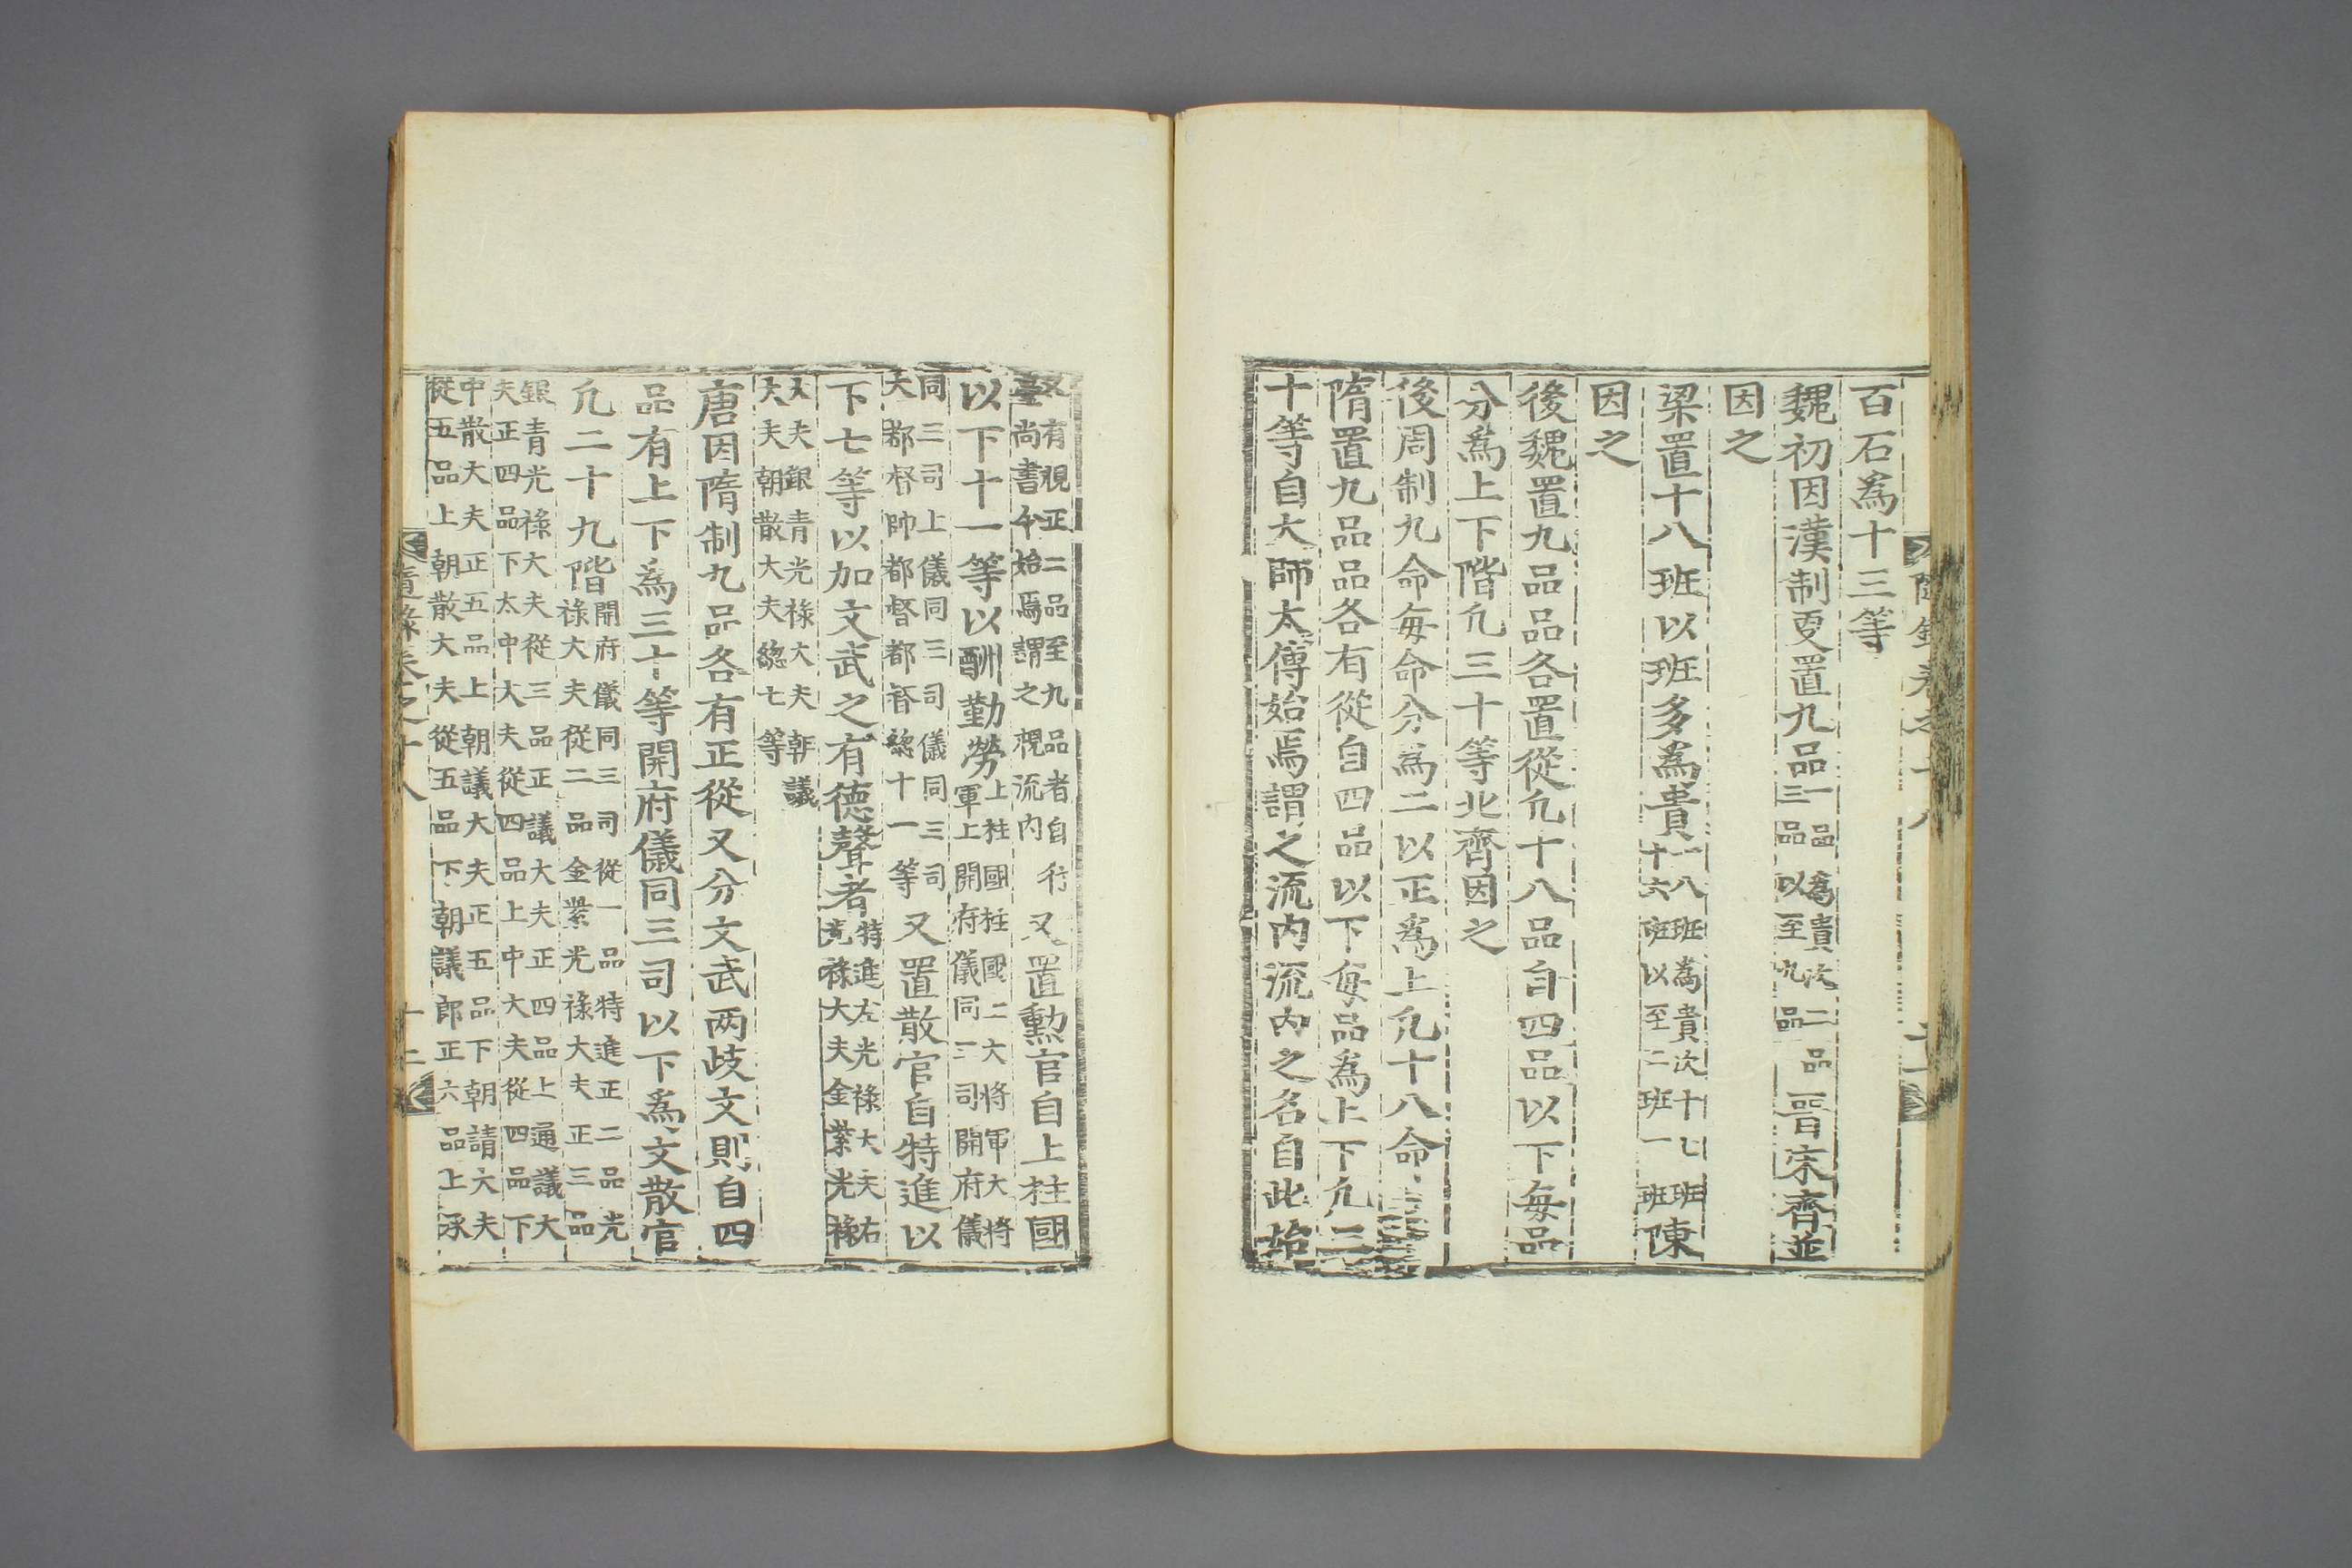 百石爲十三等
魏初因漢制更置九品一品爲貴次二品三品以至九品晉宋齊並
因之
梁置十八班以班多爲貴一八班爲貴次十七班十六班以至二班一班陳
因之
後魏置九品品各置從凢十八品自四品以下每品
分爲上下階凢三十等北齊因之
後周制九命每命分爲二以正爲上凢十八命
隋置九品品各有從自四品以下每品爲上下凢三
十等自大師太傅始焉謂之流内流内之名自此始
又有視正二品至九品者自行臺尚書令始焉謂之視流内又置勳官自上柱國
以下十一等以酬勤勞上柱國柱國二大將軍大將軍上開府儀同三司開府儀
同三司上儀同三司儀同三司大都督帥都督都督緫十一等又置散官自特進以
下七等以加文武之有德聲者特進左光祿大夫右光祿大夫金紫光祿
大夫銀青光祿大夫朝議大夫朝散大夫緫七等
唐因隋制九品各有正從又分文武两歧文則自四
品有上下爲三十等開府儀同三司以下爲文散官
凢二十九階開府儀同三司從一品特進正二品光祿大夫從二品金紫光祿大夫正三品
銀青光祿大夫從三品正議大夫正四品上通議大夫正四品下太中大夫從四品上中大夫從四品下
中散大夫正五品上朝議大夫正五品下朝請大夫從五品上朝散大夫從五品下朝議郎正六品上承